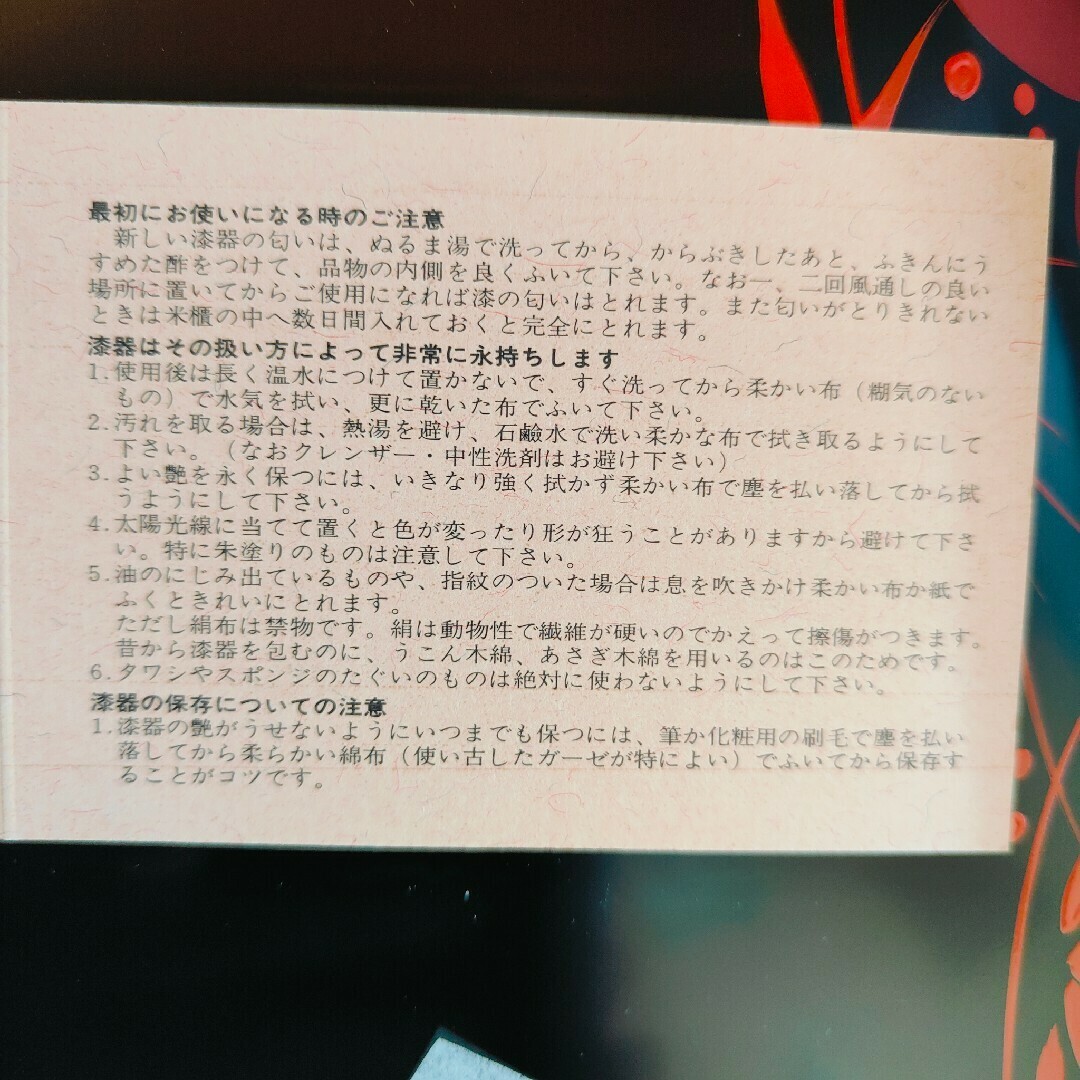 最初にお使いになる時のご注意
新しい漆器の匂いは、ぬるま湯で洗ってから、からぶきしたあと、ふきんにう
すめた酢をつけて、品物の内側を良くふいて下さい。なお一、二回風通しの良い
場所に置いてからご使用になれば漆の匂いはとれます。また匂いがとりきれない
ときは米櫃の中へ数日間入れておくと完全にとれます。
漆器はその扱い方によって非常に永持ちします
1.使用後は長く温水につけて置かないで、すぐ洗ってから柔かい布（糊気のない
もの）で水気を拭い、更に乾いた布でふいて下さい。
2.汚れを取る場合は、熱湯を避け、石鹼水で洗い柔かな布で拭き取るようにして
下さい。（なおクレンザー・中性洗剤はお避け下さい）
3.よい艶を永く保つには、いきなり強く拭かず柔かい布で塵を払い落してから拭
うようにして下さい。
4.太陽光線に当てて置くと色が変ったり形が狂うことがありますから避けて下さ
い。特に朱塗りのものは注意して下さい。
5.油のにじみ出ているものや、指紋のついた場合は息を吹きかけ柔かい布か紙で
ふくときれいにとれます。
ただし絹布は禁物です。絹は動物性で繊維が硬いのでかえって擦傷がつきます。
昔から漆器を包むのに、うこん木綿、あさぎ木綿を用いるのはこのためです。
6.タワシやスポンジのたぐいのものは絶対に使わないようにして下さい。
漆器の保存についての注意
1.漆器の艶がうせないようにいつまでも保つには、筆か化粧用の刷毛で塵を払い
落してから柔らかい綿布（使い古したガーゼが特によい）でふいてから保存す
ることがコツです。